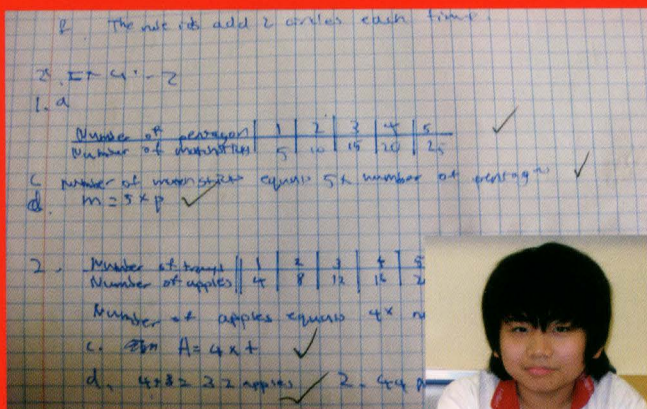 The rule is add 2 circles each time.
1. a
Number of pentagon 1 2 3 4 5
Number of matchsticks 5 10 15 20 25
c number of matchsticks equals 5x number of pentagon
d. m = 5 x p
2. Number of trays 1 2 3 4 5
Number of apples 4 8 12 16 2
Number of apples equals 4x n
c. A = 4 x t
d. 4 x 8 = 32 apples 2. 44